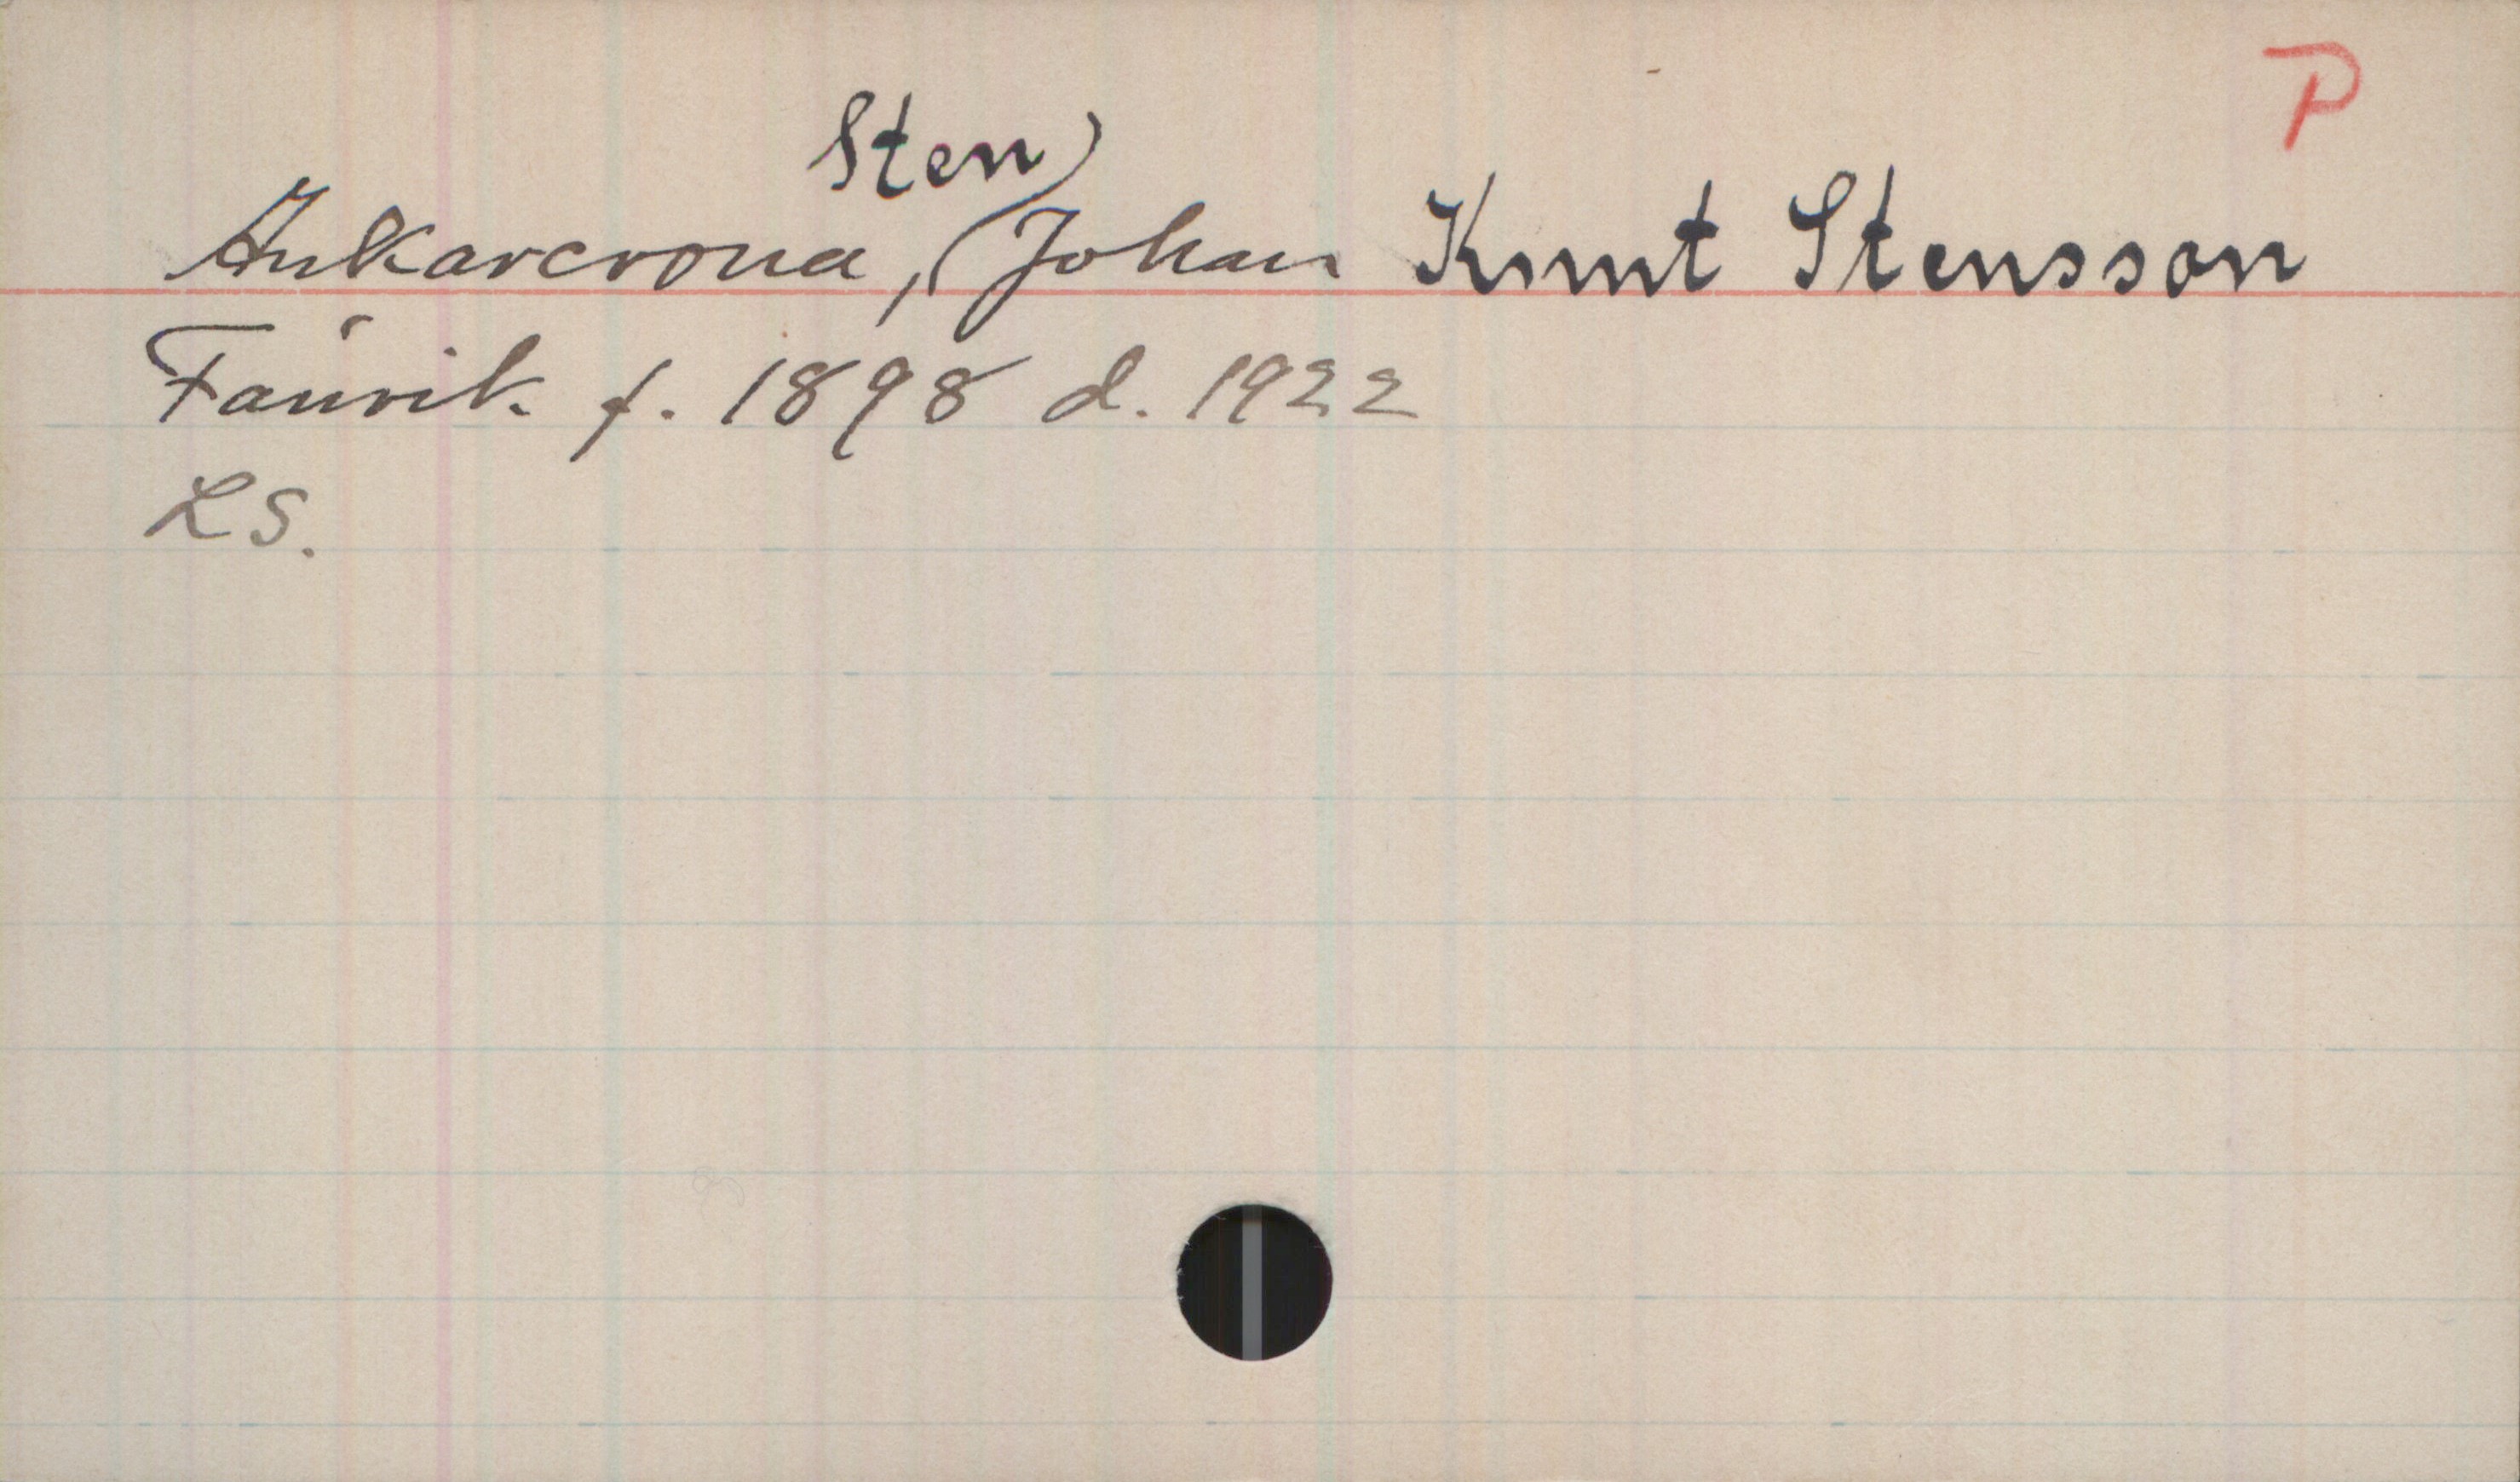 P
Sten
Ankarcrona, Johan Knut Stensson
Fänrik f. 1898 d. 1922
LS.